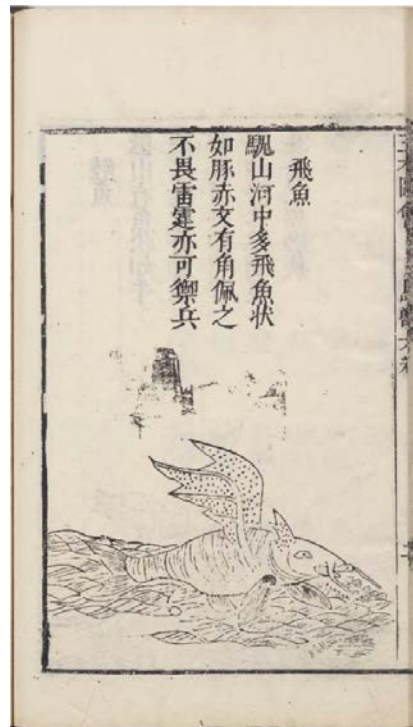 飛魚
騩山河中多飛魚状
如豚赤文有角佩之
不畏雷霆亦可禦兵
三才圖會